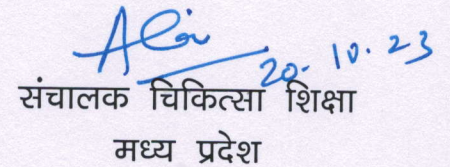 20.10.23
संचालक चिकित्सा शिक्षा
मध्य प्रदेश